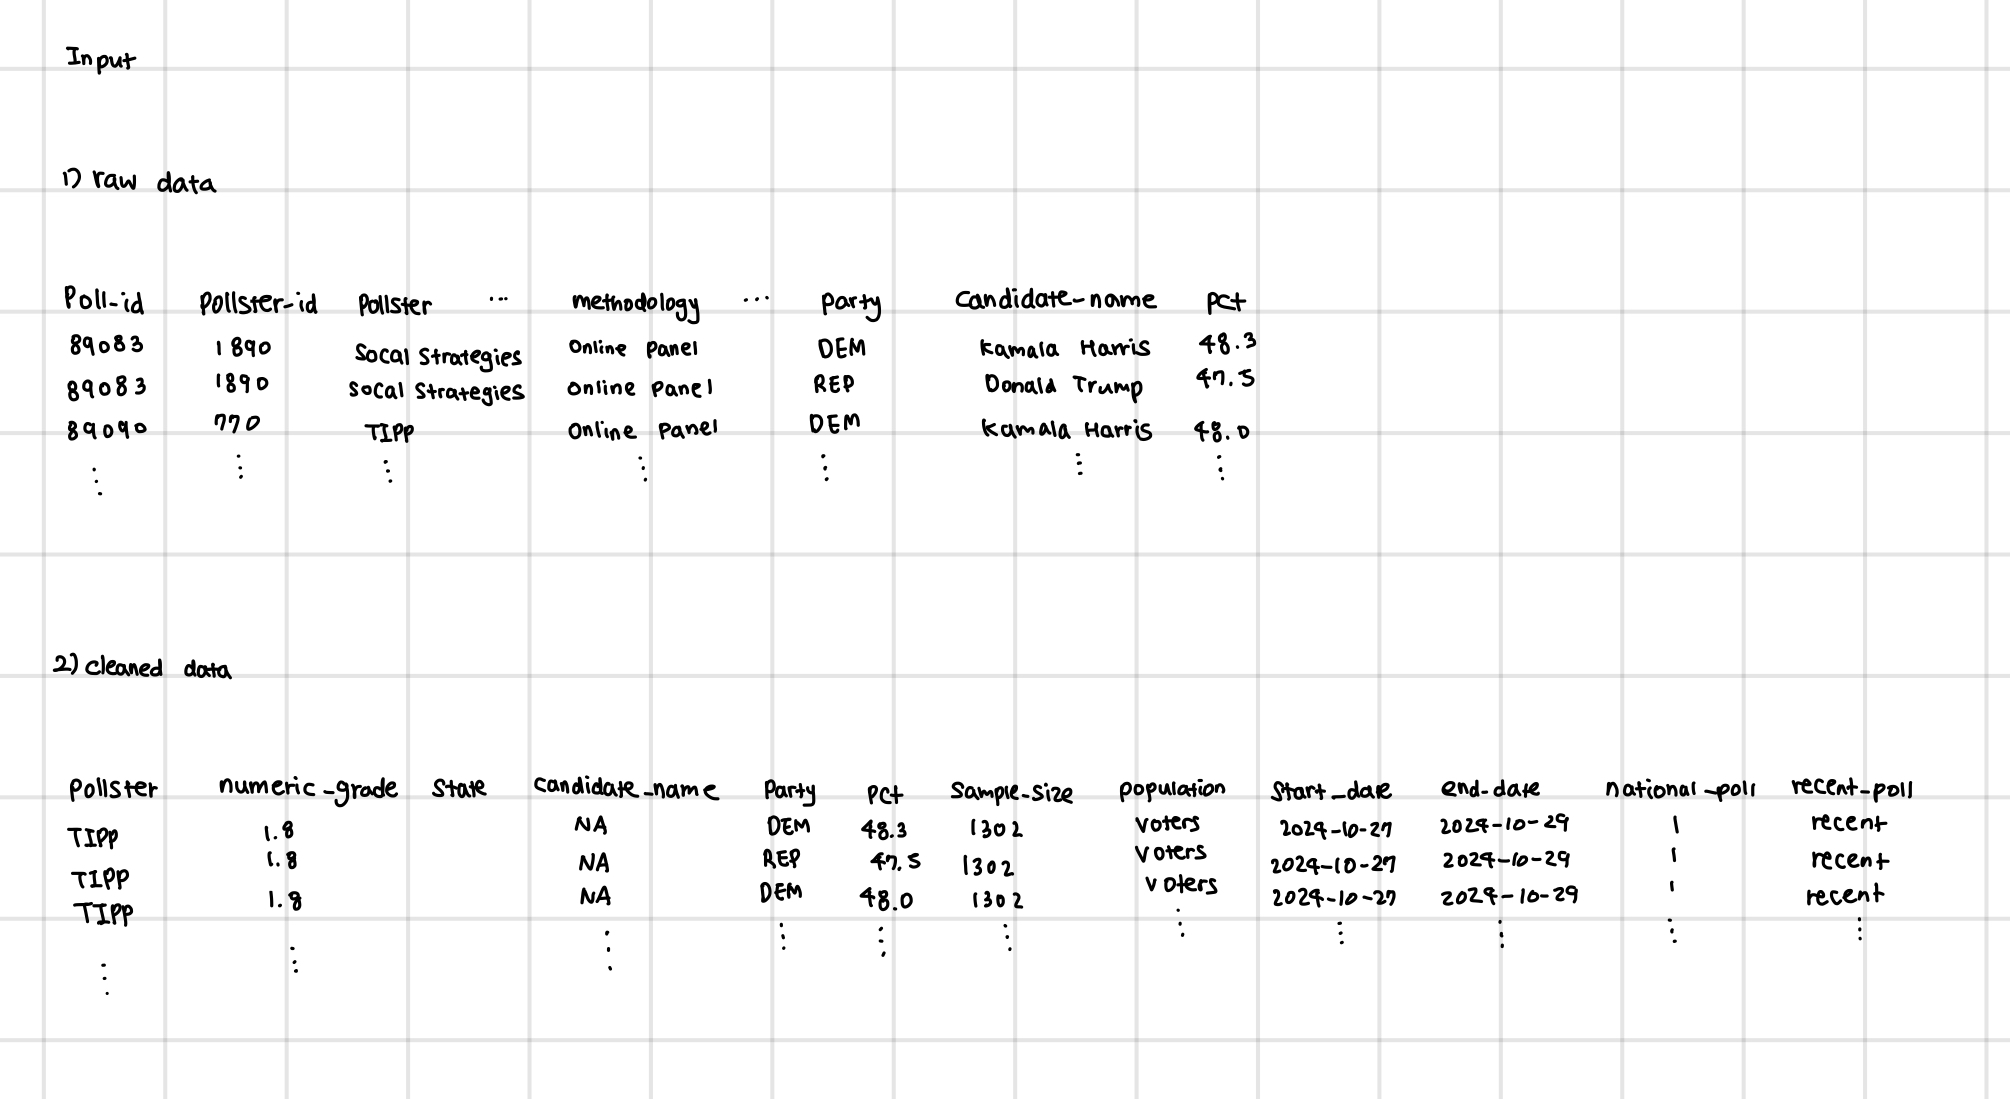 Input
1) raw data
Poll-id pollster-id pollster ... methodology ... party candidate-name pct
89083 1890 Socal Strategies Online Panel DEM Kamala Harris 48.3
89083 1890 Socal Strategies Online Panel REP Donald Trump 47.5
89090 770 TIPP Online Panel DEM Kamala Harris 48.0
⋮ ⋮ ⋮ ⋮ ⋮ ⋮ ⋮
2) cleaned data
pollster numeric_grade state candidate_name party pct sample_size population start_date end-date national_poll recent-poll
TIPP 1.8 NA DEM 48.3 1302 voters 2024-10-27 2024-10-29 1 recent
TIPP 1.8 NA REP 47.5 1302 voters 2024-10-27 2024-10-29 1 recent
TIPP 1.8 NA DEM 48.0 1302 voters 2024-10-27 2024-10-29 1 recent
⋮ ⋮ ⋮ ⋮ ⋮ ⋮ ⋮ ⋮ ⋮ ⋮ ⋮